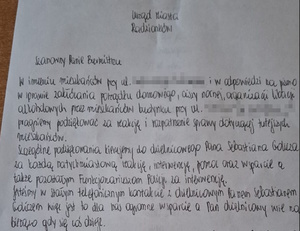 Urząd Miasta
Radzionków
Szanowny Panie Burmistrzu
W imieniu mieszkańców przy ul. i w odpowiedzi na pismo
w sprawie zakłócania porządku domowego, ciszy nocnej, organizacji libacji
alkoholowych przez mieszkańców budynku przy ul.
pragniemy podziękować za reakcję i sprawy dotyczącej tutejszych
mieszkańców.
Szczególne podziękowania kierujemy do dzielnicowego Pana Sebastiana
za każdą natychmiastową reakcję, interwencję, pomoc oraz wsparcie a
także pozostałym Funkcjonariuszom Policji za interwencję.
Jesteśmy w stałym telefonicznym kontakcie z dzielnicowym Panem Sebastianem
jest to dla nas ogromne wsparcie a Pan dzielnicowy wie na
bieżąco gdy coś się dzieje.